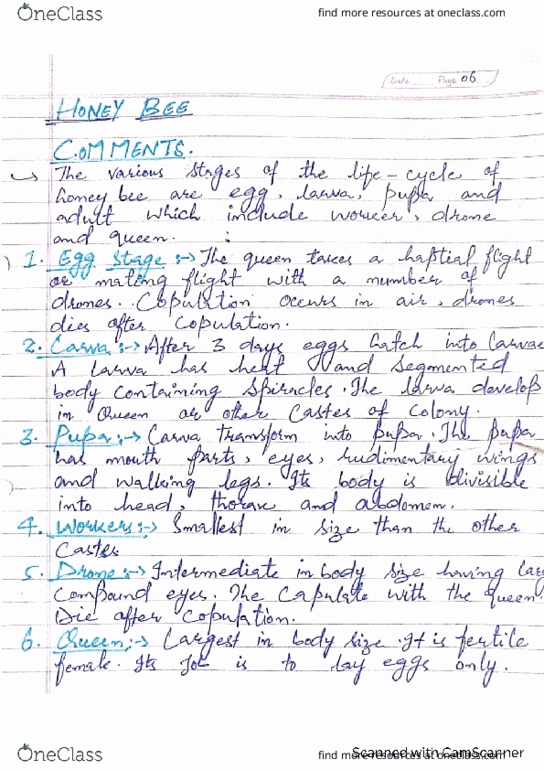 OneClass
find more resources at oneclass.com
Date Page 06
HONEY BEE
COMMENTS.
The various stages of the life-cycle of
honey bee are egg, larva, pupa and
adult which include worker, drone
and queen.
1. Egg stage :→ The queen takes a haptial flight
or mating flight with a number of
drones. Copulation occurs in air, drones
dies after copulation.
2. Larva :→ After 3 days eggs hatch into larvae
A larva has head and segmented
body containing spiracles. The larva develop
in Queen or other castes of colony.
3. Pupa :→ Larva transform into pupa. The pupa
has mouth parts, eyes, rudimentary wings
and walking legs. Its body is divisible
into head, thorax and abdomen.
4. Workers :→ Smallest in size than the other
Castes
5. Drone :→ Intermediate in body size having larg
compound eyes. The capulate with the queen.
Die after copulation.
6. Queen :→ Largest in body size. It is fertile
female. Its Job is to lay eggs only.
OneClass
find more resources at oneclass.com
Scanned with CamScanner